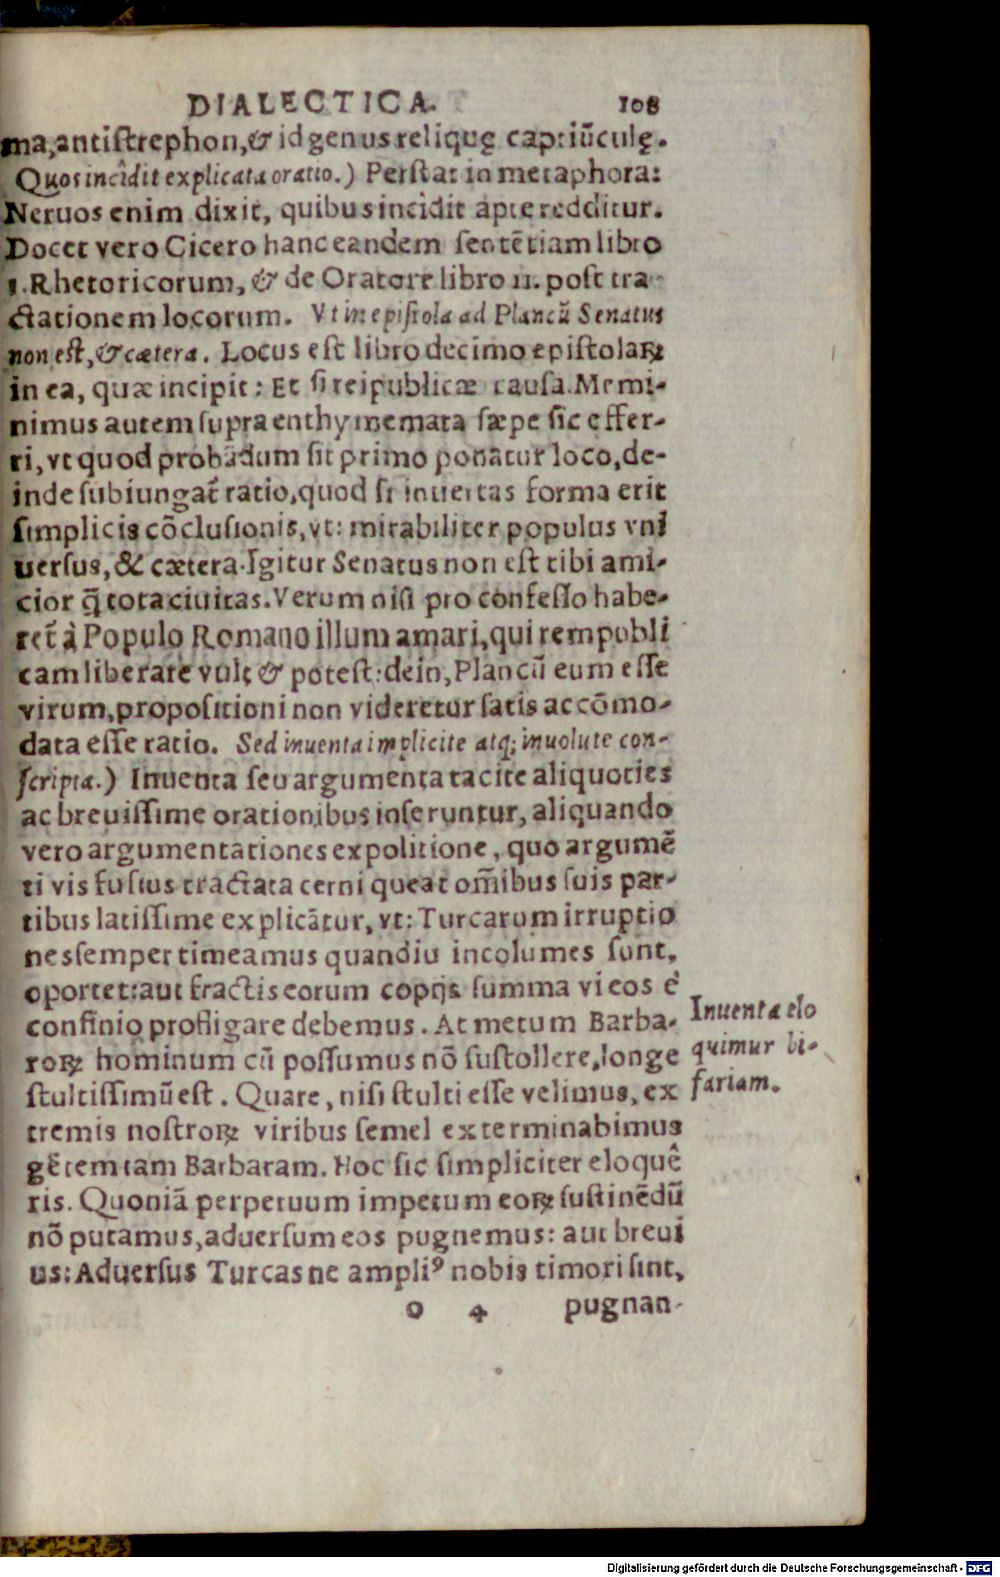 DIALECTICA. 108
ma, antistrephon, & id genus reliquę captiũculę.
Quos incîdit explicata oratio.) Perstat in metaphora:
Neruos enim dixit, quibus incîdit apte redditur.
Docet vero Cicero hanc eandem sentẽtiam libro
1. Rhetoricorum, & de Oratore libro 11. post tra-
ctationem locorum. Vt in epistola ad Plancũ Senatus
non est, & cætera. Locus est libro decimo epistolaꝝ
in ea, quæ incipit: Et si reipublicæ causa. Memi-
nimus autem supra enthymemata sæpe sic effer-
ri, vt quod probãdum sit primo ponatur loco, de-
inde subiungat̃ ratio, quod si inuertas forma erit
simplicis cõclusionis, vt: mirabiliter populus vni
uersus, & cætera. Igitur Senatus non est tibi ami-
cior q̃ tota ciuitas. Verum nisi pro confesso habe-
ret̃ à Populo Romano illum amari, qui rempubli
cam liberare vult & potest: dein, Plancũ eum esse
virum, propositioni non videretur satis accõmo-
data esse ratio. Sed inuenta implicite atq; inuolute con-
scripta.) Inuenta seu argumenta tacite aliquoties
ac breuissime orationibus inseruntur, aliquando
vero argumentationes expolitione, quo argumẽ
ti vis fusius tractata cerni queat om̃ibus suis par-
tibus latissime explicãtur, vt: Turcarum irruptio
nes semper timeamus quandiu incolumes sunt,
oportet: aut fractis eorum copijs summa vi eos è
confinio profligare debemus. At metum Barba-
roꝝ hominum cũ possumus nõ sustollere, longe
stultissimũ est. Quare, nisi stulti esse velimus, ex
tremis nostroꝝ viribus semel exterminabimus
gẽtem tam Barbaram. Hoc sic simpliciter eloquê
ris. Quoniã perpetuum impetum eoꝝ sustinẽdũ
nõ putamus, aduersum eos pugnemus: aut breui
us: Aduersus Turcas ne ampliꝰ nobis timori sint,
o 4 pugnan-
Inuenta elo
quimur bi-
fariam.
Digitalisierung gefördert durch die Deutsche Forschungsgemeinschaft - DFG